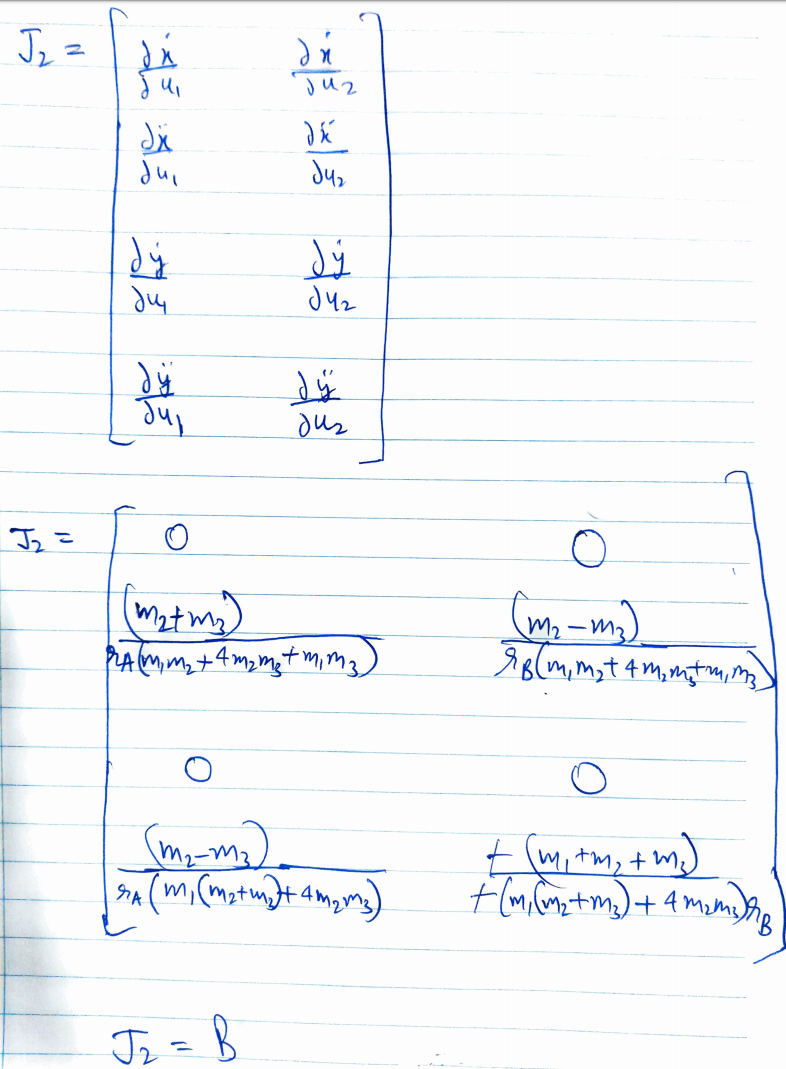 J₂ = [ ∂ẋ/∂u₁  ∂ẋ/∂u₂
∂ẍ/∂u₁  ∂ẍ/∂u₂
∂ẏ/∂u₁  ∂ẏ/∂u₂
∂ÿ/∂u₁  ∂ÿ/∂u₂ ]
J₂ = [ 0  0
(m₂+m₃)/r_A(m₁m₂+4m₂m₃+m₁m₃)  (m₂−m₃)/r_B(m₁m₂+4m₂m₃+m₁m₃)
0  0
(m₂−m₃)/r_A(m₁(m₂+m₃)+4m₂m₃)  +(m₁+m₂+m₃)/+(m₁(m₂+m₃)+4m₂m₃)r_B ]
J₂ = B